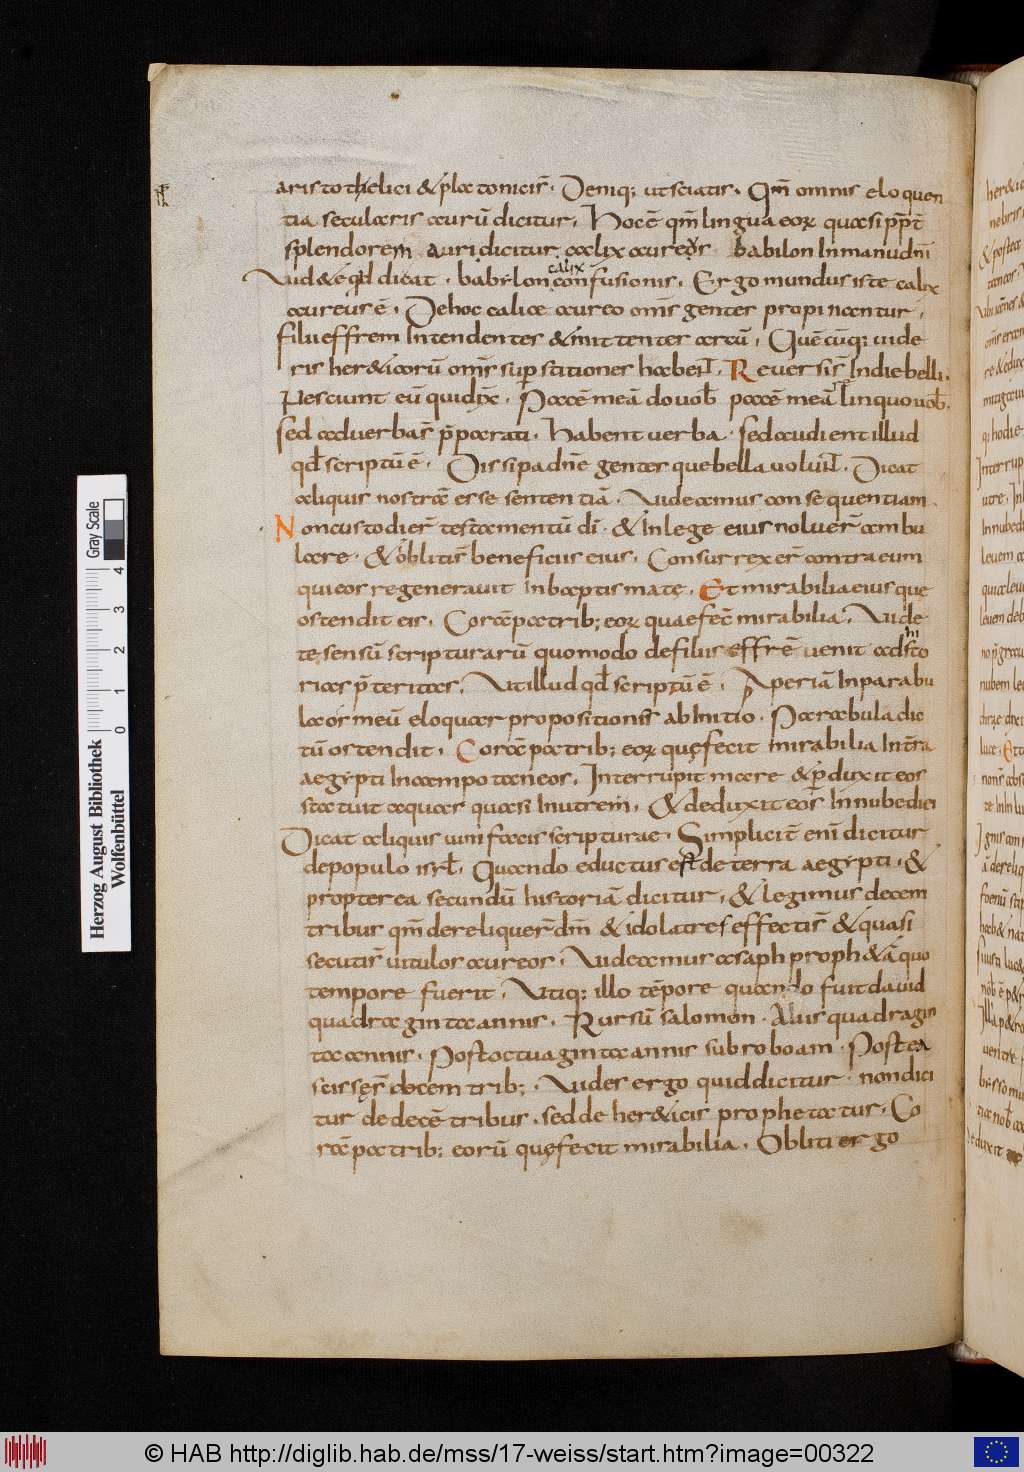 aristothelici & platonicis̄. Deniq; ut sciatis. Qm̄ omnis eloquen
tia secularis aurū dicitur. Hoc ē qm̄ lingua eoꝝ quasi pp̄t
splendorem auri dicitur. calix aureus babilon in manu dn̄i
Uid&e qd dicat. babylon calix confusionis. Ergo mundus iste calix
aureus ē. De hoc calice aureo om̄s gentes propinantur,
filii effrem intendentes & mittentes arcū, Quēcūq; uide
ris her&icorū om̄s superstitiones habent. Reuersi s̄ in die belli.
Nesciunt eū qui dix̄. Pacē meā do uob̄ pacē meā relinquo uob̄.
sed aduerbas̄ p̄parati. habent uerba. sed audient illud
qd̄ scriptū ē. Dissipa dn̄e gentes que bella uolunt. Dicat
aliquis nostrae esse sententiā. Uideamus consequentiam.
Non custodier̄ testamentū dī. & in lege eius noluer̄ ambu
lare. & obliti s̄ beneficiis eius. Consurrexer̄ contra eum
qui eos regenerauit in baptismatę. Et mirabilia eius que
ostendit eis. Corā patrib; eoꝝ quae fec̄ mirabilia. Uide
te sensū scripturarū quomodo de filiis effrē uenit ad sto
rias p̄teritas. Ut illud qd̄ scriptū ē. Aperiā in parabu
la os meū eloquar propositionis̄ ab initio. Parabula dic
tū ostendit. Corā patrib; eoꝝ quę fecit mirabilia in tr̄a
aegypti in campo taneos. Interrupit mare & p̄duxit eos
statuit aquas quasi in utrem. & deduxit eos̄ in nube diei
Dicat aliquis uim facis scripturae. Simplicit̄ enī dicitur
de populo isrl̄. Quando eductus est de terra aegypti. &
propterea secundū historiā dicitur, & legimus decem
tribus qm̄ dereliquer̄ dm̄ & idolatres effecti s̄ & quasi
secuti s̄ uitulos aureos. Uideamus asaph proph&ā quo
tempore fuerit. Utiq; illo tēpore quando fuit dauid
quadraginta annis. Rursū salomon. Aliis quadragin
ta annis. Post octuaginta annis sub roboam. Postea
scis sęr̄ decem trib;. Uides ergo quid dicitur. non dici
tur de decē tribus. sed de her&icis prophetatur. Co
rā patrib; eorū quę fecit mirabilia. Obliti ergo
Herzog August Bibliothek
Wolfenbüttel
Gray Scale
0 1 2 3 4
© HAB http://diglib.hab.de/mss/17-weiss/start.htm?image=00322